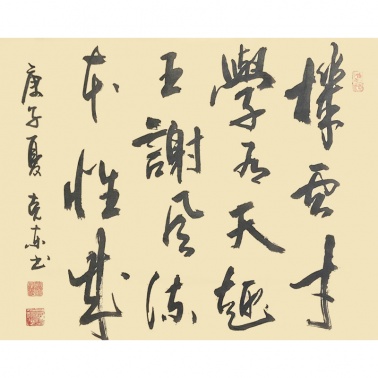 機雲才
學有天趣
王謝風流
本性成
庚子夏克东书